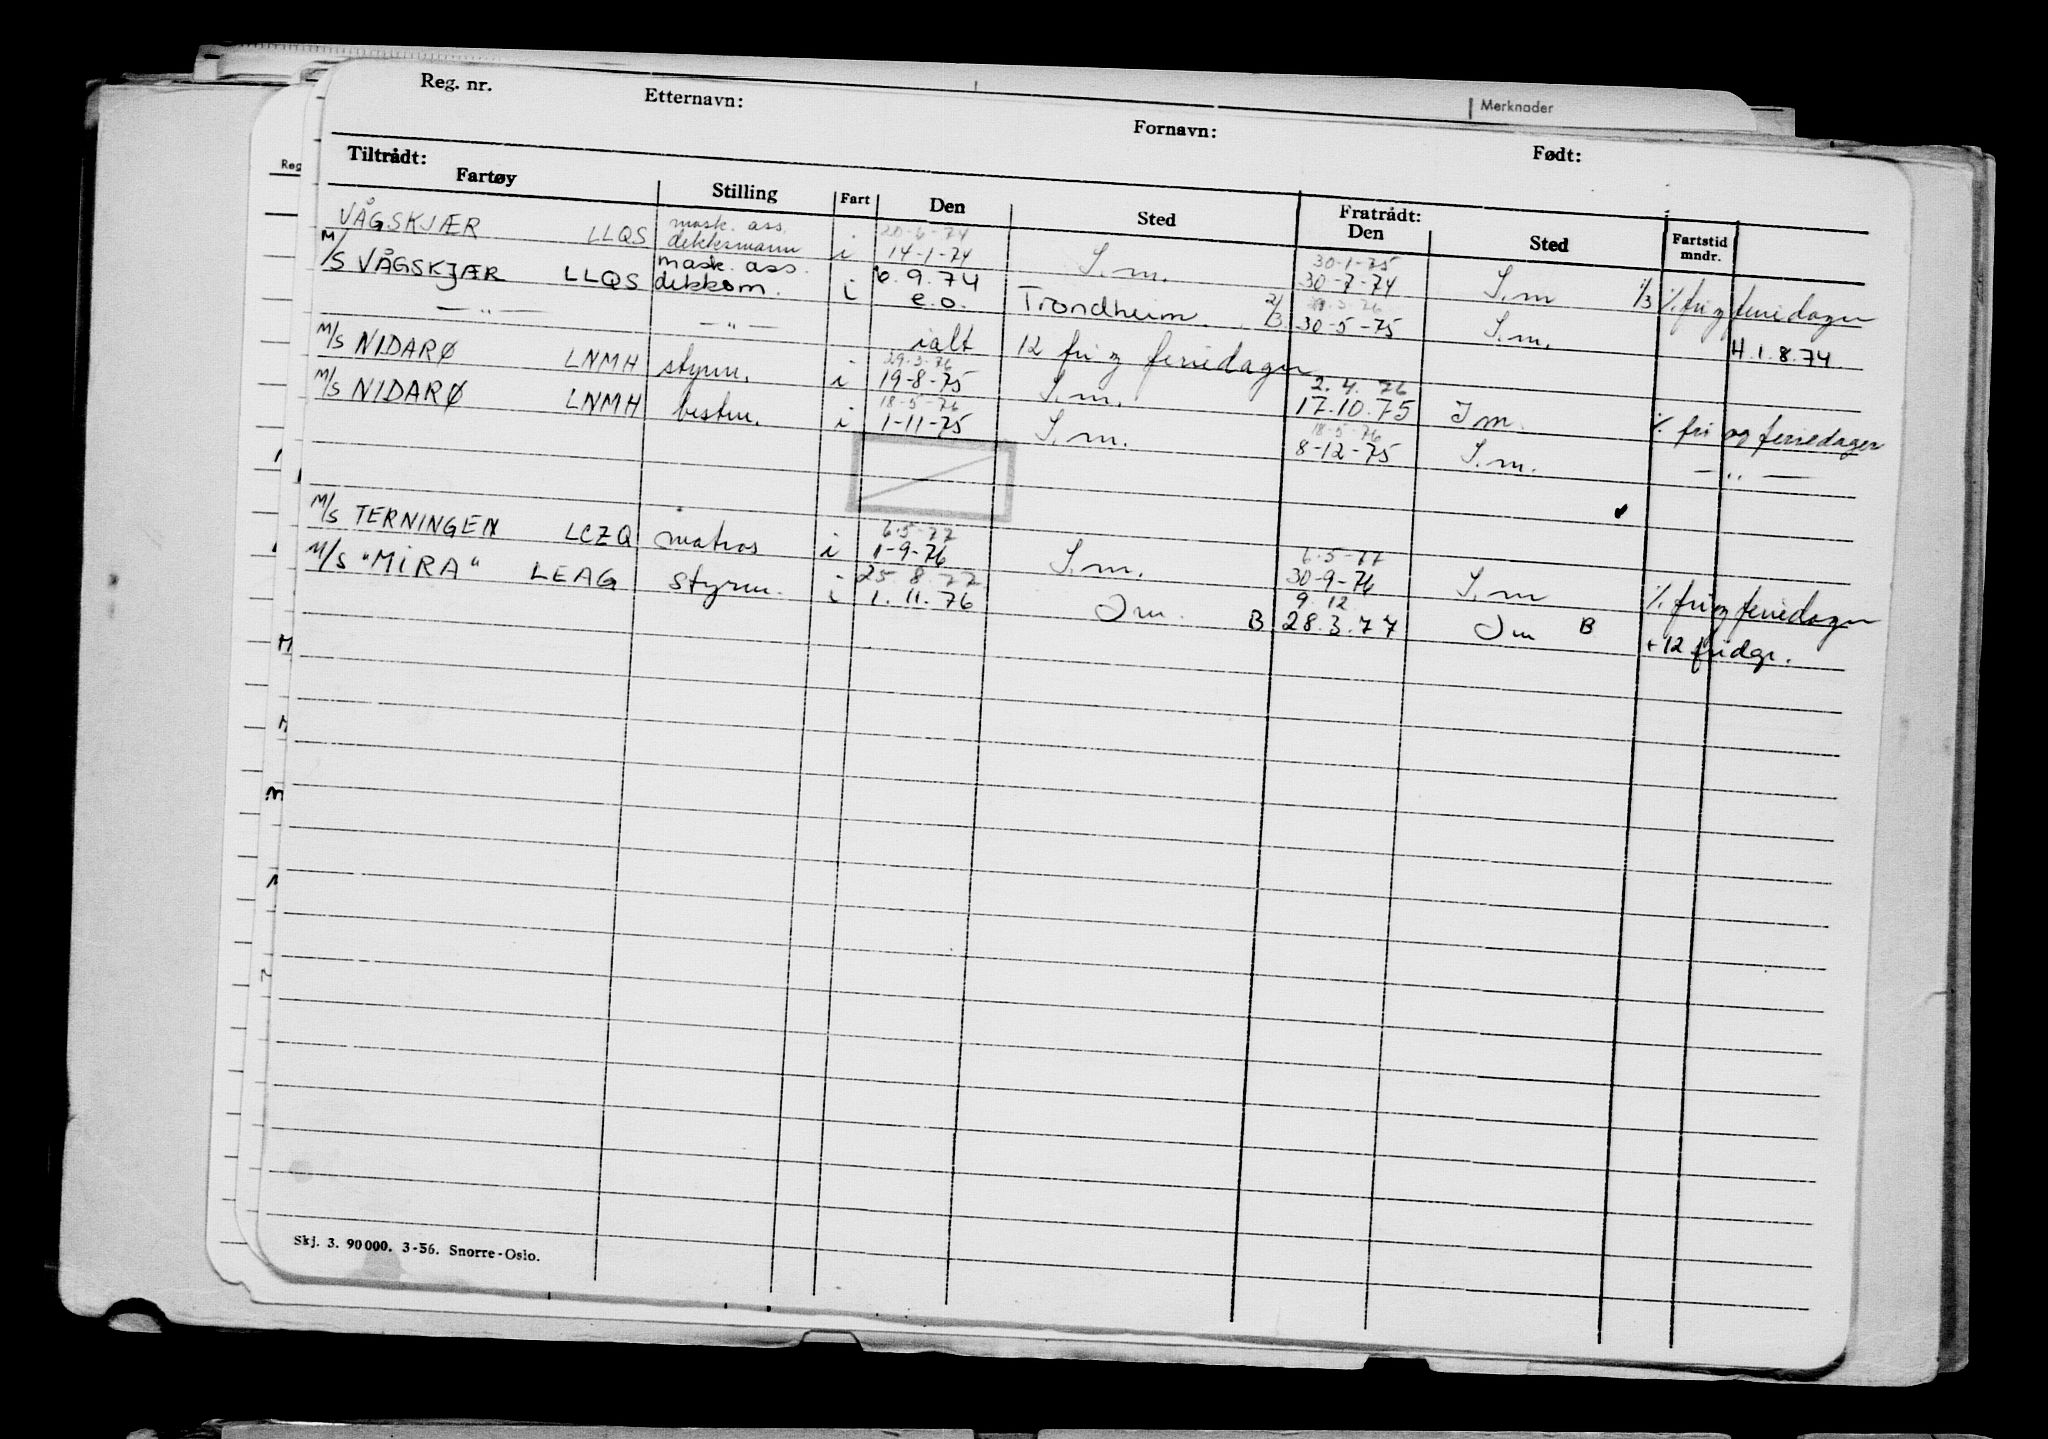 Merknader
Reg. nr. Etternavn: Fornavn: Født:
Reg
Tiltrådt: Fratrådt:
Fartøy Stilling Fart Den Sted Den Sted Fartstid mndr.
mask. ass. 20-6-74 30-1-75
VÅGSKJÆR LLQS dekksmann i 14-1-74 S.m. 30-7-74 S.m 1/3 % fri og feriedager
mask. ass. 6.9.74
M/S VÅGSKJÆR LLQS dekksm. i e.o. Trondheim 2/3 30-5-75 S.m. H.1.8.74
— " — — " — ialt 12 fri og feriedager
29.3.76 2.4.76
M/S NIDARØ LNMH styrm. i 19-8-75 S.m. 17.10.75 Sm. % fri og feriedager
18-5-76 18-5-76
M/S NIDARØ LNMH bestm. i 1-11-75 S.m. 8-12-75 S.m. — " —
6-5-77 6-5-77
M/S TERNINGEN LCZQ matros i 1-9-76 S.m. 30-9-76 S.m % fri og feriedager
25.8.77 9.12
M/S "MIRA" LEAG styrm. i 1.11.76 Sm. B 28.3.77 Sm B + 12 fridgr.
Skj. 3. 90000. 3-56. Snorre-Oslo.